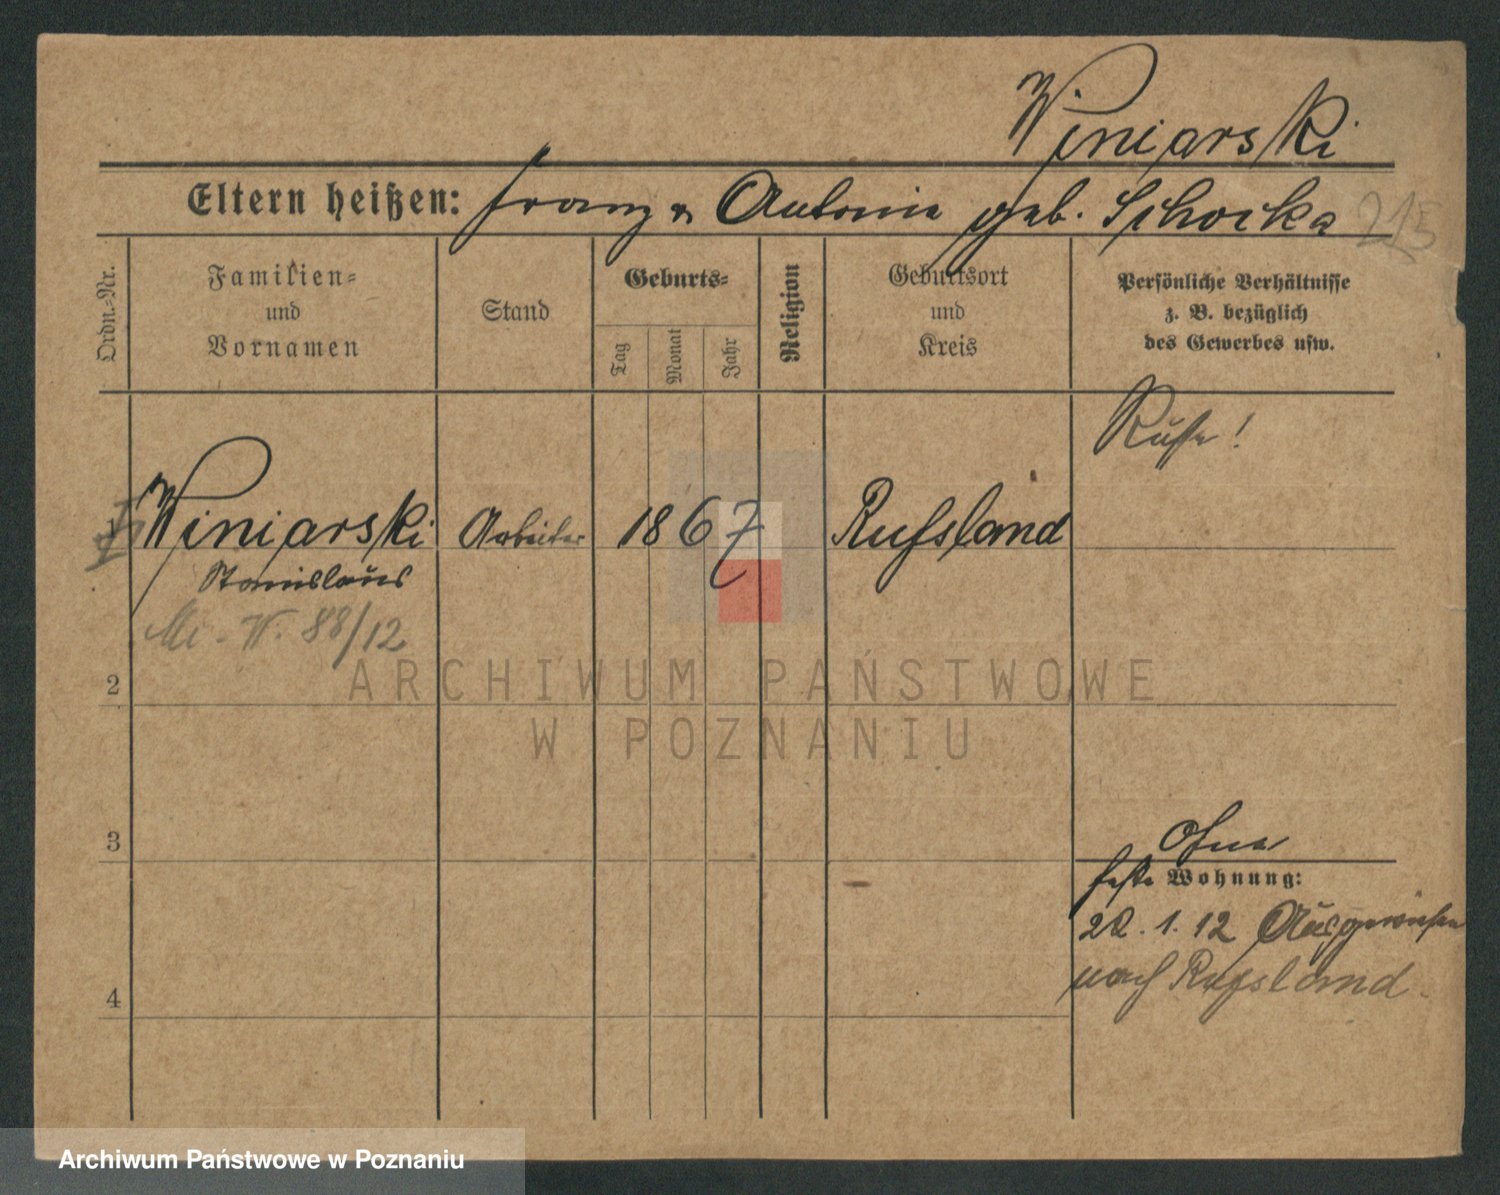 Winiarski
Eltern heißen: Franz u Antonie geb. Schocka
215
Ordn.-Nr.
Familien-
und
Vornamen
Stand
Geburts-
Tag
Monat
Jahr
Religion
Geburtsort
und
Kreis
Persönliche Verhältnisse
z. B. bezüglich
des Gewerbes usw.
Russe!
Winiarski Arbeiter 1867 Russland
Stanislaus
W. 88/12
2
3
Ohne
feste Wohnung:
22.1.12 Ausgewiesen
nach Russland.
4
ARCHIWUM PAŃSTWOWE
W POZNANIU
Archiwum Państwowe w Poznaniu